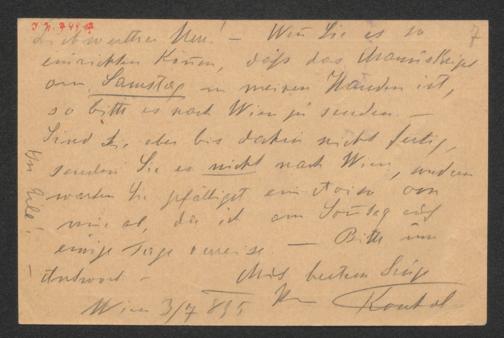 7
– Wenn Sie es so
einrichten können, daß das Manuskript
am Samstag in meinen Händen ist,
so bitte es nach Wien zu senden. –
Sind Sie aber bis dahin nicht fertig,
senden Sie es nicht nach Wien, sondern
warten Sie gefälligst ein Aviso von
mir ab, da ich am Sonntag auf
einige Tage verreise – Bitte um
Antwort –
Mit bestem Gruße
Ihr
Wien 3/7 895
In Eile!